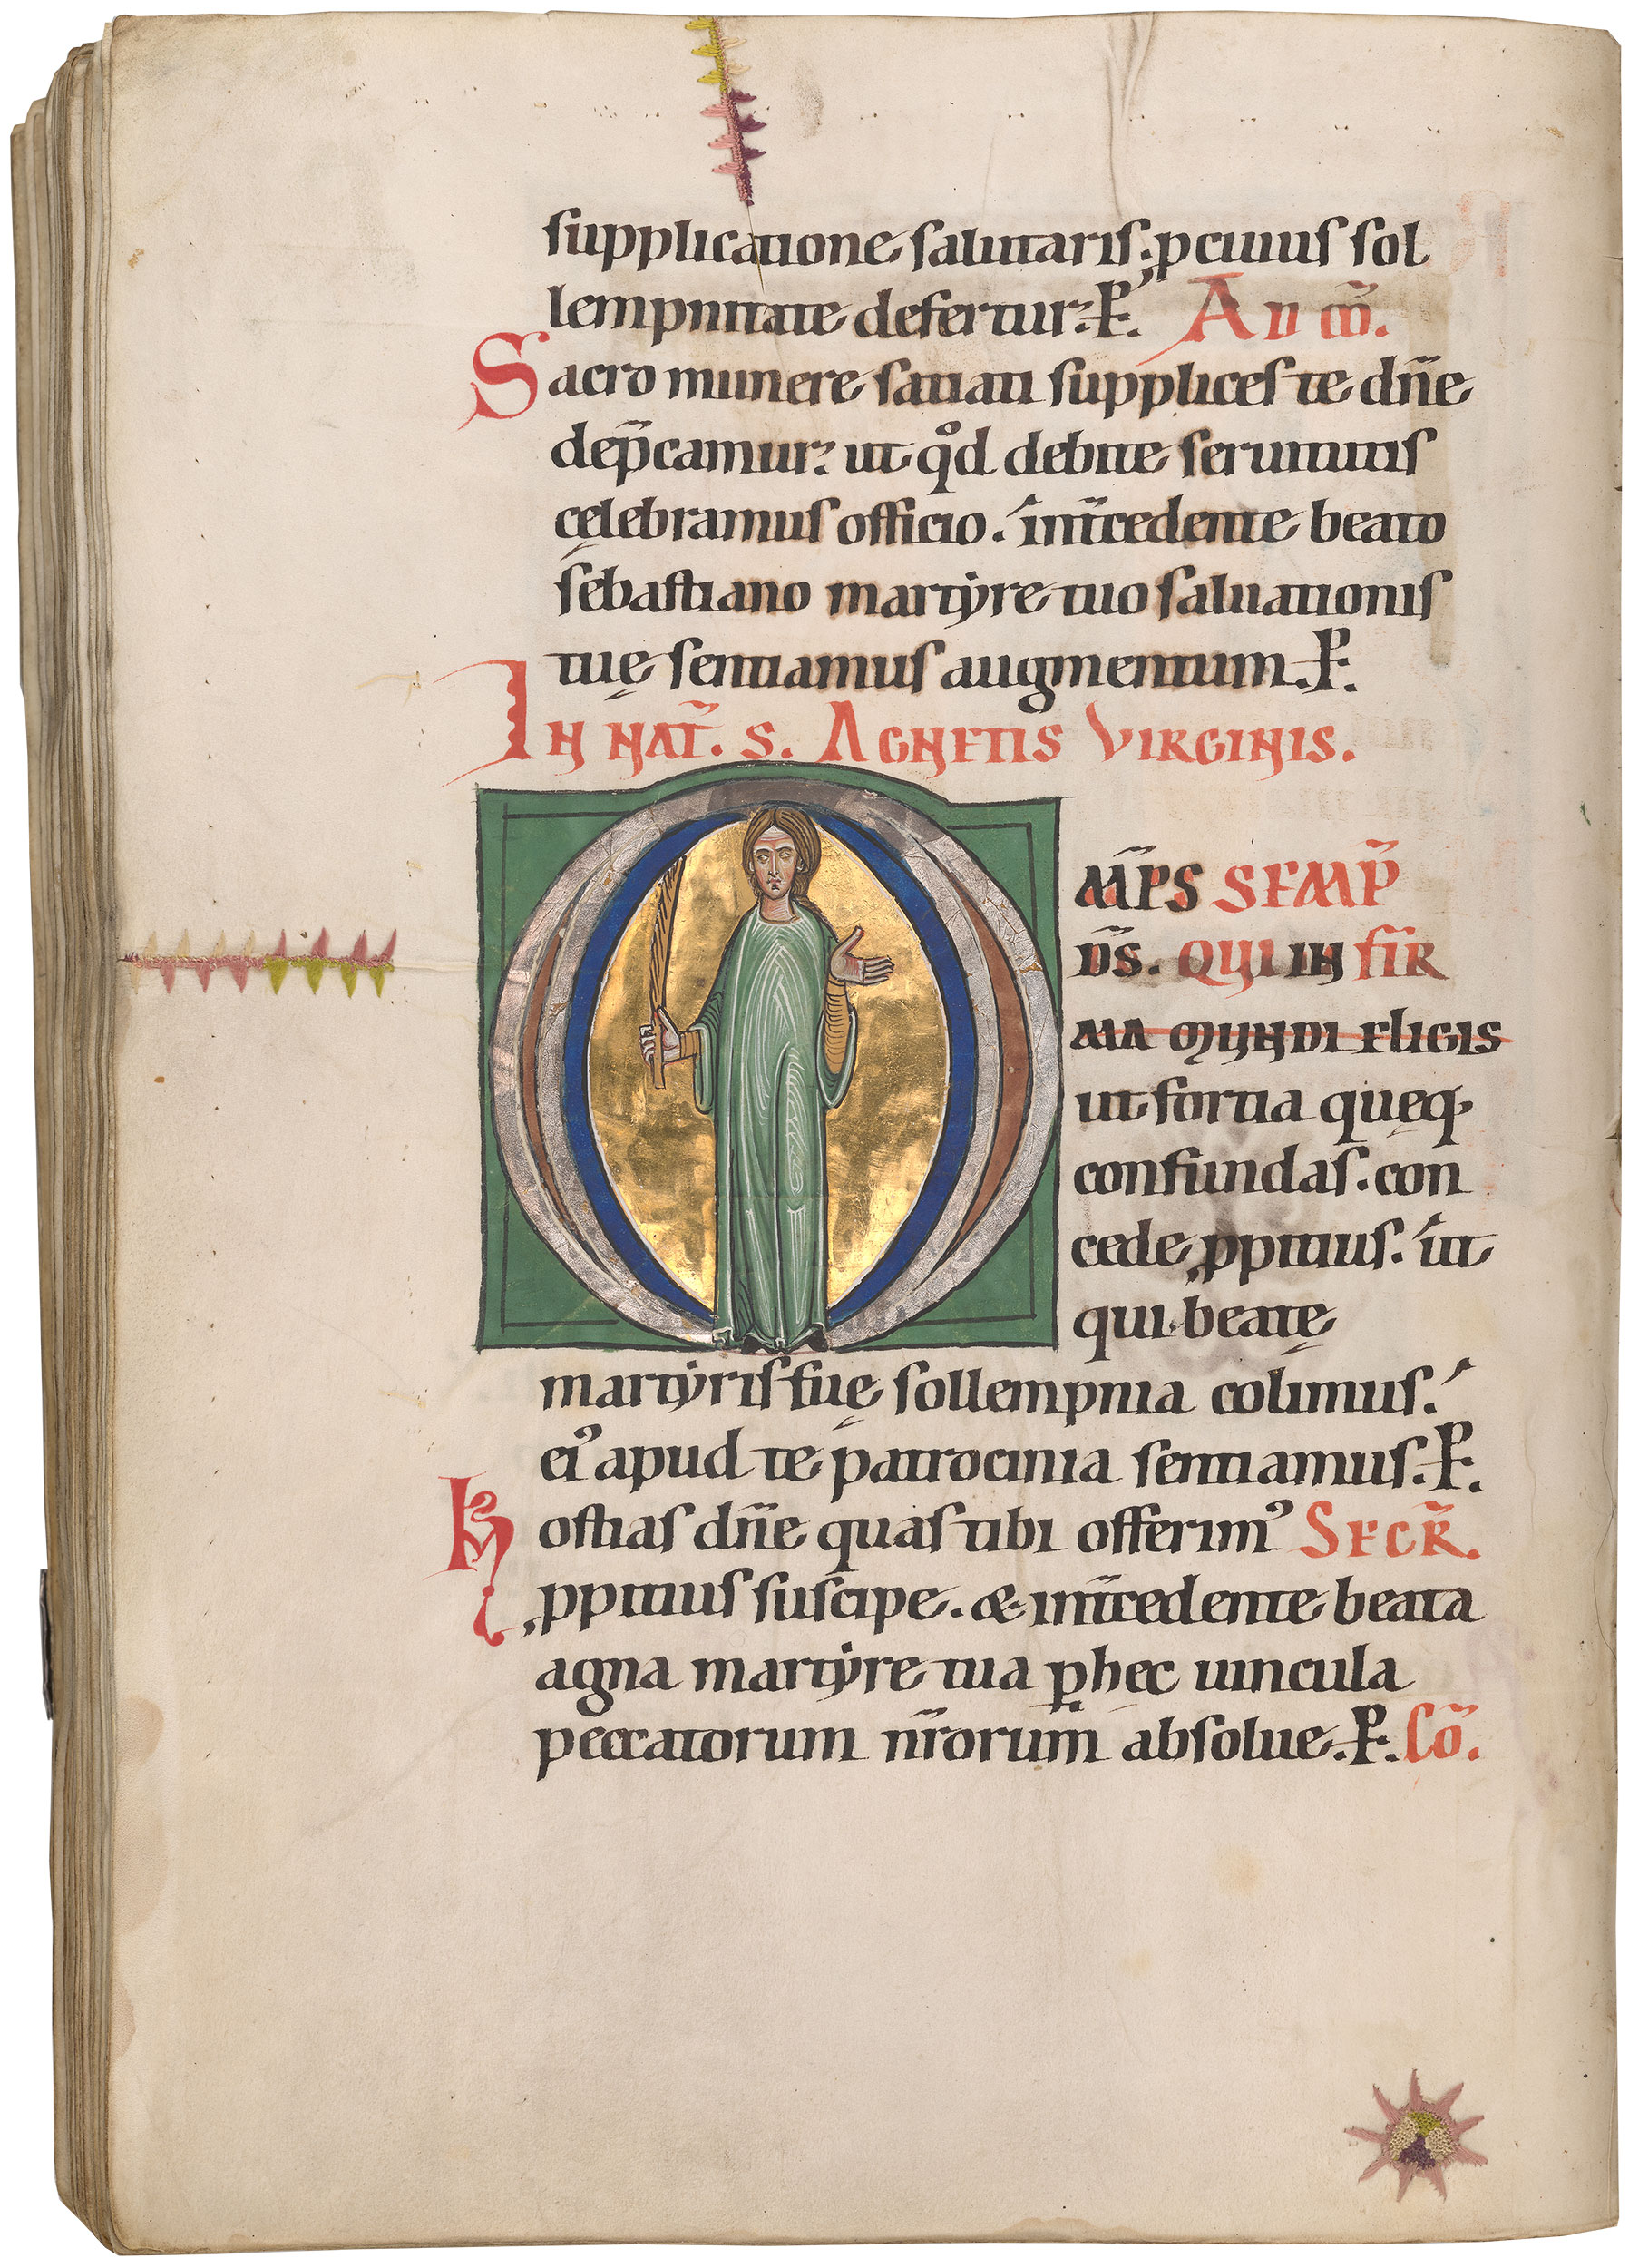 supplicatione salutaris. ꝑ cuius sol
lempnitate defertur. P. AD CŌ.
Sacro munere satiati supplices te dn̄e
dep̄camur. ut qͦd debite seruitutis
celebramus officio. int̄cedente beato
sebastiano martẏre tuo saluationis
tuę sentiamus augmentum. P.
IN NAT̄. S. AGNETIS VIRGINIS.
OM̄PS SEMP̄
D̄S. QUI IN FIR
MA MUNDI ELIGIS
ut fortia quęq;
confundas. con
cede ꝓpitius. ut
qui beatę
martẏris tuę sollempnia colimus.
ei᾿ apud te patrocinia sentiamus. P.
Hostias dn̄e quas tibi offerim᾿ SECR̄.
ꝓpitius suscipe. & int̄cedente beata
agna martẏre tua ꝑ hec uincula
peccatorum nr̄orum absolue. P. Cō.